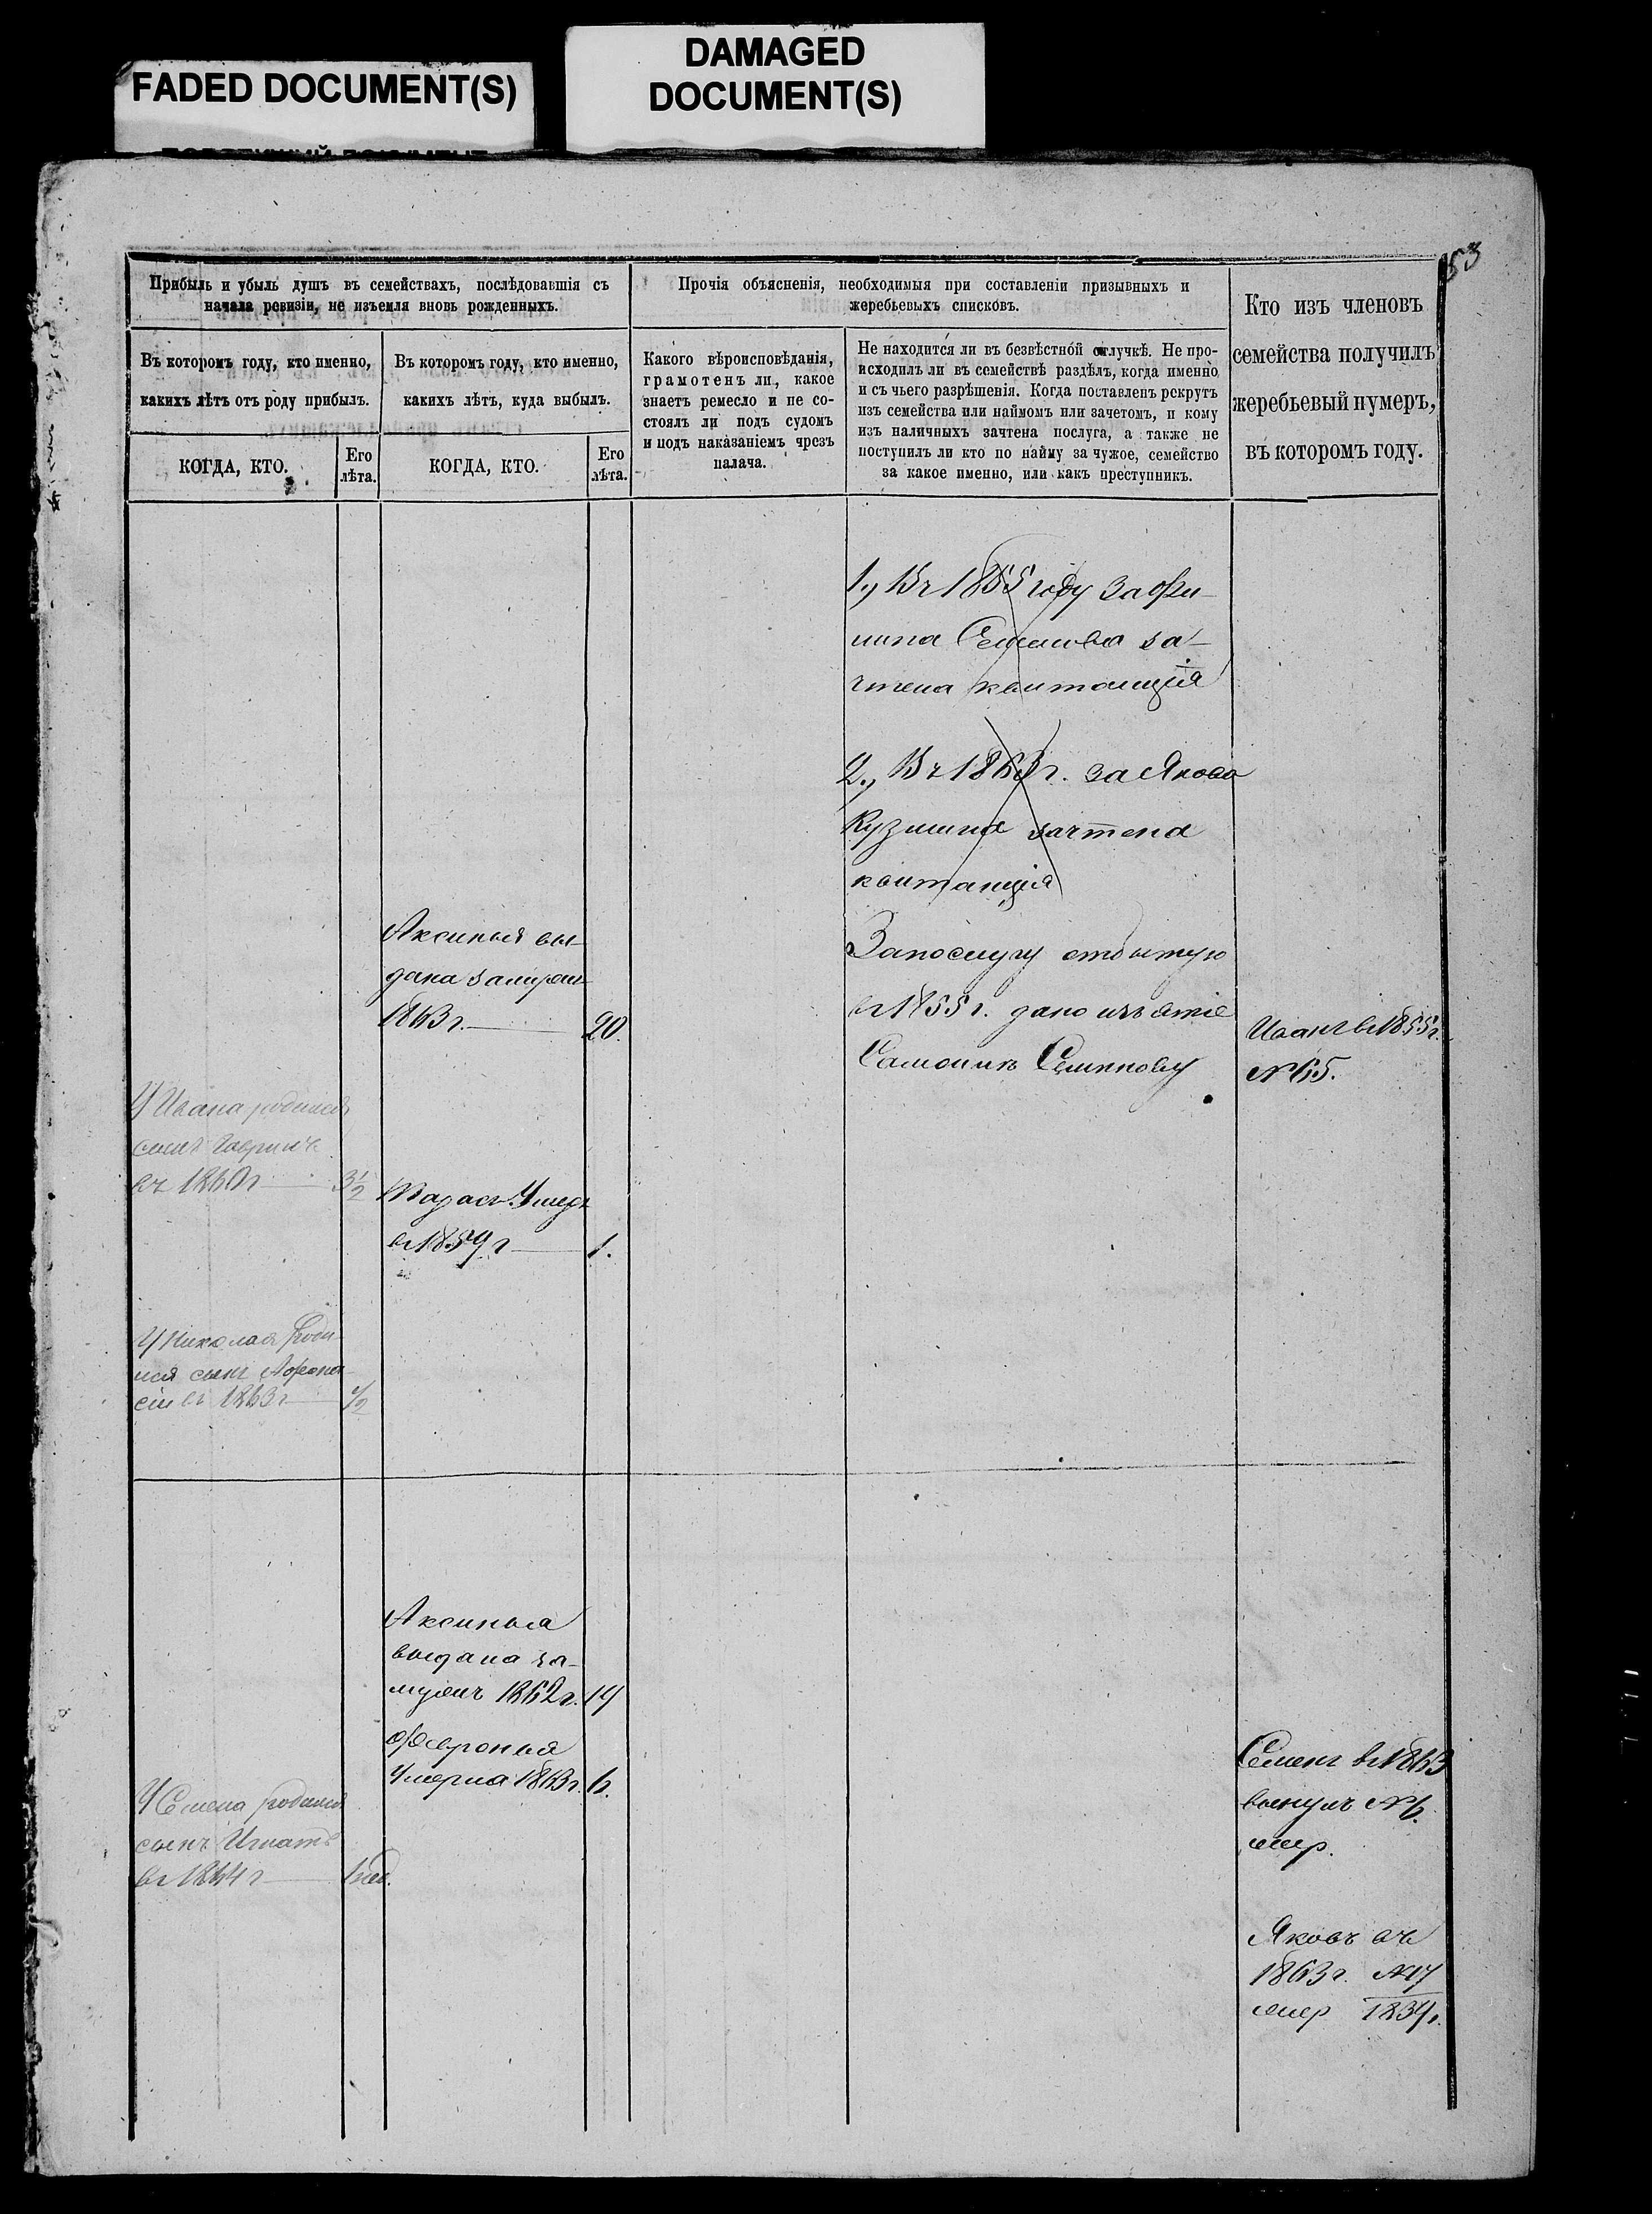 FADED DOCUMENT(S)
DAMAGED
DOCUMENT(S)
53
Прибыль и убыль душъ въ семействахъ, послѣдовавшія съ
начала ревизіи, не изъемля вновь рожденныхъ.
Въ которомъ году, кто именно,
какихъ лѣтъ отъ роду прибылъ.
КОГДА, КТО.
Его
лѣта.
Въ которомъ году, кто именно,
какихъ лѣтъ, куда выбылъ.
КОГДА, КТО.
Его
лѣта.
Прочія объясненія, необходимыя при составленіи призывныхъ и
жеребьевыхъ списковъ.
Какого вѣроисповѣданія,
грамотенъ ли, какое
знаетъ ремесло и не со-
стоялъ ли подъ судомъ
и подъ наказаніемъ чрезъ
палача.
Не находится ли въ безвѣстной отлучкѣ. Не про-
исходилъ ли въ семействѣ раздѣлъ, когда именно
и съ чьего разрѣшенія. Когда поставленъ рекрутъ
изъ семейства или наймомъ или зачетомъ, и кому
изъ наличныхъ зачтена послуга, а также не
поступилъ ли кто по найму за чужое, семейство
за какое именно, или какъ преступникъ.
Кто изъ членовъ
семейства получилъ
жеребьевый нумеръ,
въ которомъ году.
1., Въ 1855 году за Фи-
липа Семенова за-
чтена квитанція
2., Въ 1863 г. за Якова
Кузмина зачтена
квитанція
Аксинья вы-
дана замужъ
1863 г. 20.
За послугу отбытую
въ 1855 г. дано изъятіе
Семенову
Иванъ въ 1855 г.
№ 65.
У Ивана родился
сынъ Гаврилъ
въ 1860 г 3½
Тарасъ Умеръ
въ 1859 г 1.
У Николая роди
лся сынъ Афона
сій въ 1863 г ½
Аксинья
выдана за-
мужъ 1862 г. 19
Февронья
Умерла 1863 г. 6.
У Семена родился
сынъ Игнатъ
въ 1864 г 1 нед.
Семенъ въ 1863
вынулъ № 6.
жер.
Яковъ въ
1863 г. № 17
жер 1834 г.